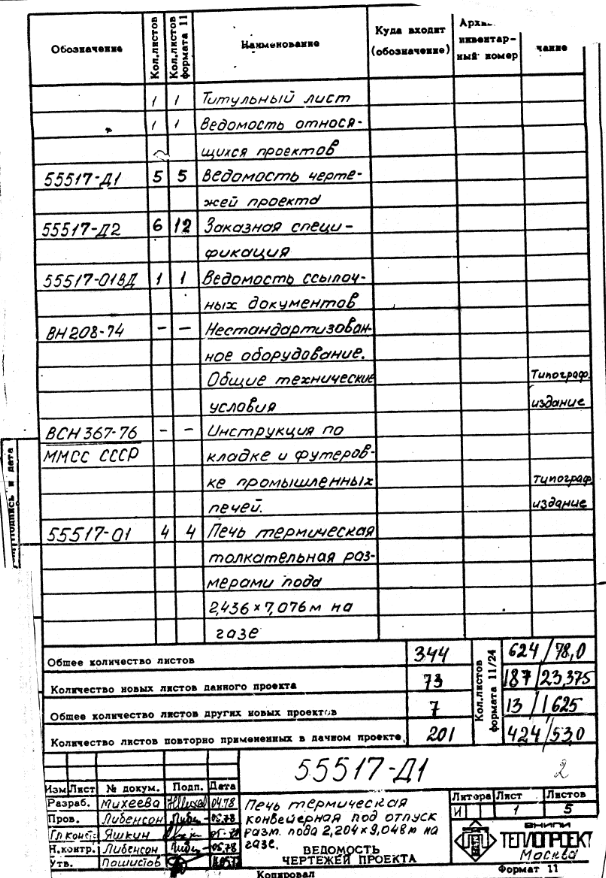 Обозначение Кол.листов Кол.листов формата 11 Наименование Куда входит (обозначение) инвентарный номер чание
1 1 Титульный лист
1 1 Ведомость относя-
щихся проектов
55517-Д1 5 5 Ведомость черте-
жей проекта
55517-Д2 6 12 Заказная специ-
фикация
55517-01ВД 1 1 Ведомость ссылоч-
ных документов
ВН208-74 - - Нестандартизован-
ное оборудование.
Общие технические Типограф.
условия издание
ВСН 367-76 - - Инструкция по
ММСС СССР кладке и футеров-
ке промышленных типограф.
печей. издание
55517-01 4 4 Печь термическая
толкательная раз-
мерами пода
2,436×7,076м на
газе
Общее количество листов 344 Кол.листов формата 11/24 624/78,0
Количество новых листов данного проекта 73 187/23,375
Общее количество листов других новых проектов 7 13/1625
Количество листов повторно примененных в данном проекте 201 424/53,0
55517-Д1 2
Изм Лист № докум. Подп. Дата
Разраб. Михеева 04.78
Пров. Либенсон 05.78
Гл.конст. Яшкин
Н.контр. Либенсон 05.78
Утв.
Печь термическая
конвейерная под отпуск
разм. пода 2,204×9,048м на
газе.
ВЕДОМОСТЬ
ЧЕРТЕЖЕЙ ПРОЕКТА
Литера Лист Листов
И 1 5
ВНИПИ
ТЕПЛОПРОЕКТ
Москва
Копировал Формат 11
Подпись и дата